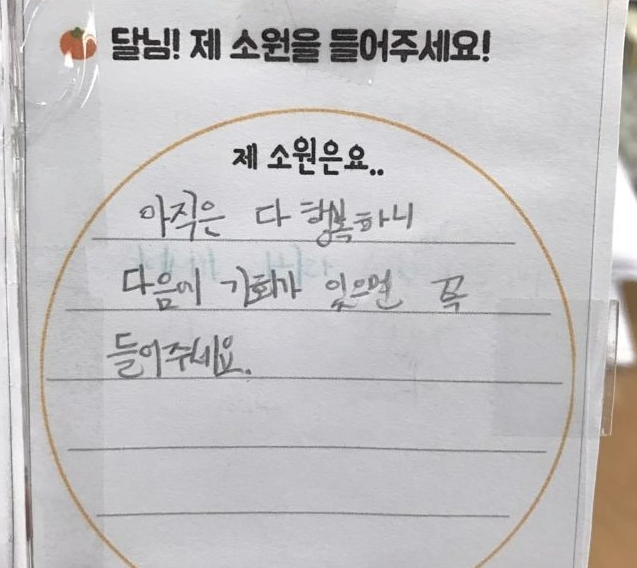 달님! 제 소원을 들어주세요!
제 소원은요..
아직은 다 행복하니
다음에 기회가 있으면 꼭
들어주세요.